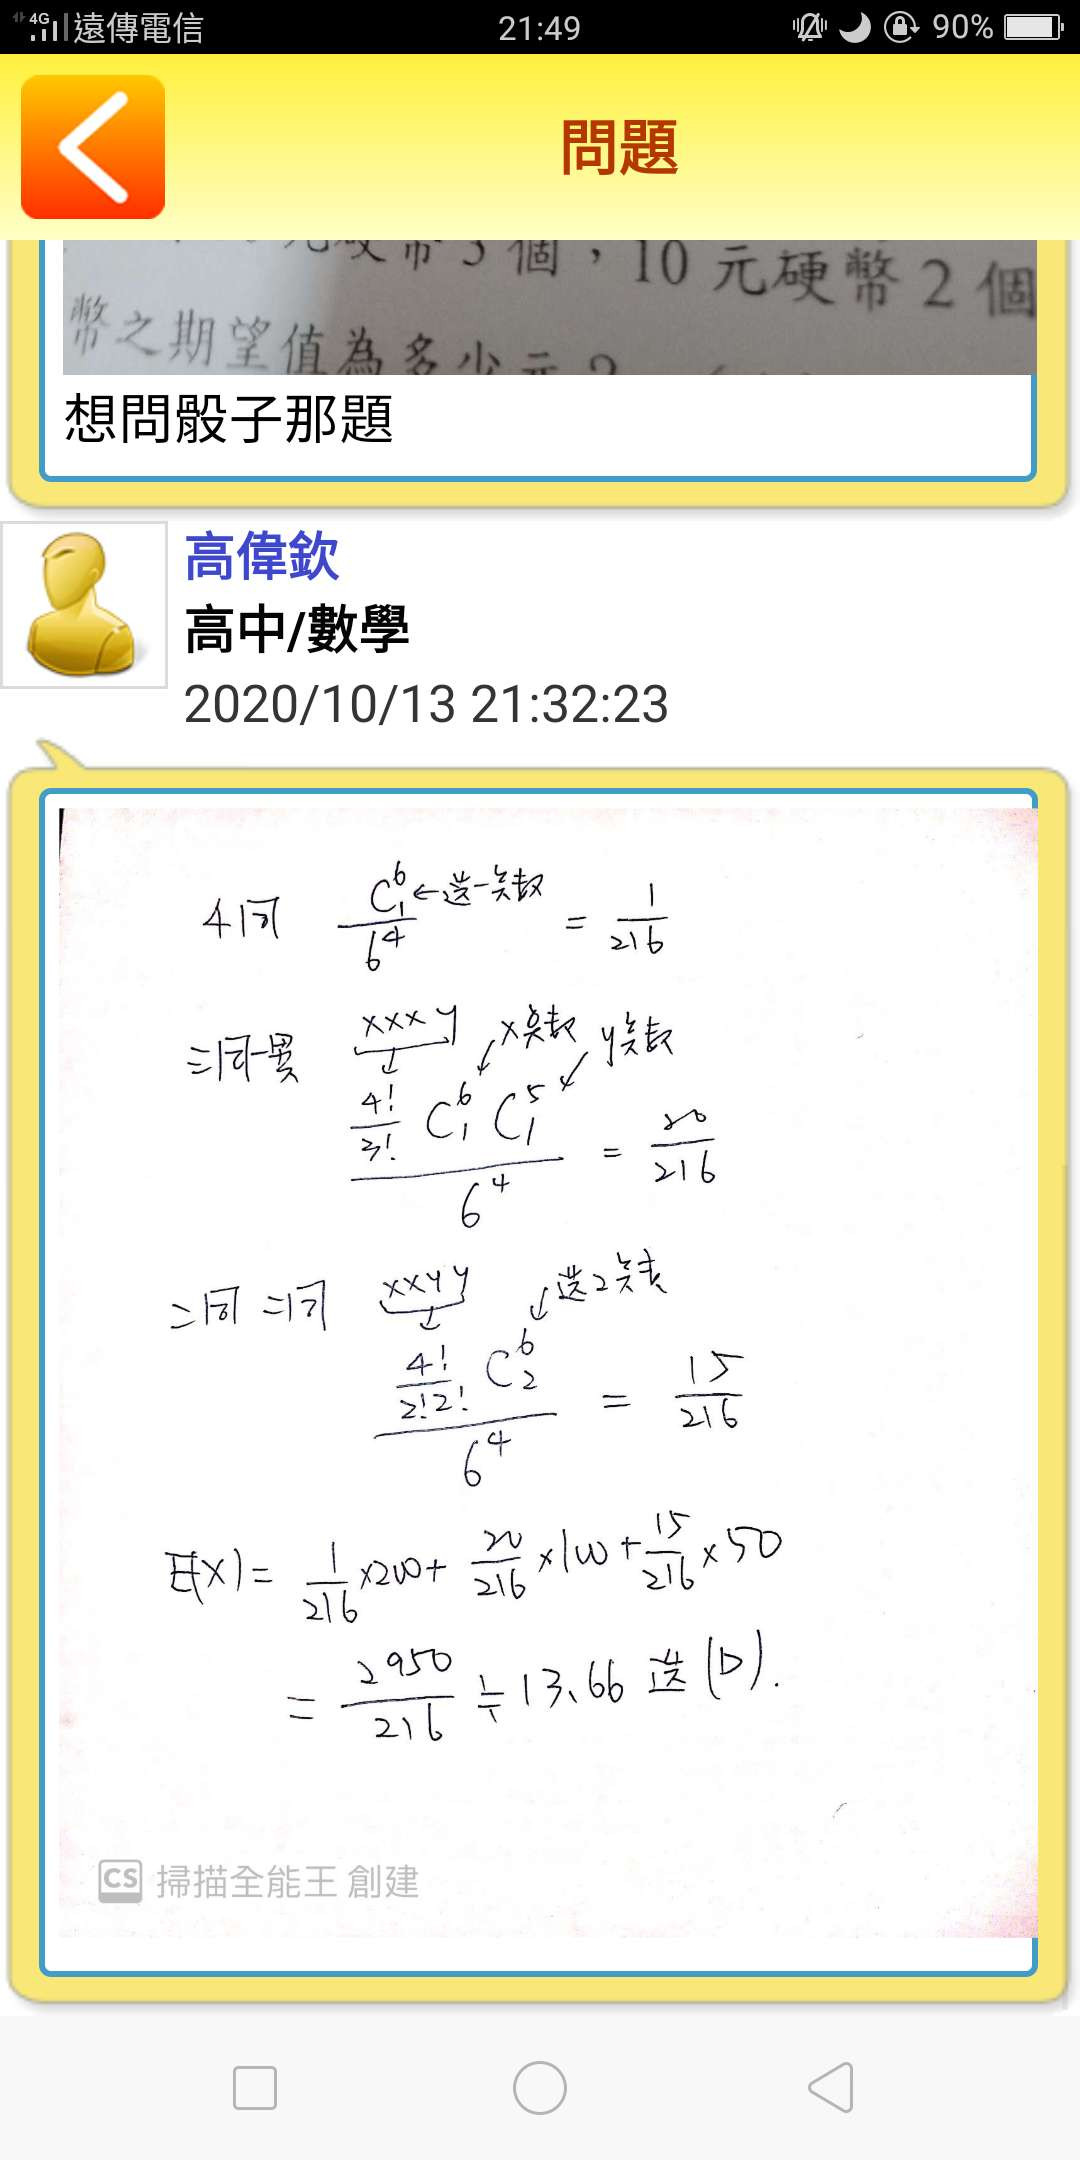 4G 遠傳電信 21:49 90%
問題
元硬幣 3 個，10 元硬幣 2 個
幣之期望值為多少元？
想問骰子那題
高偉欽
高中/數學
2020/10/13 21:32:23
4同 C⁶₁ ←選一点数 / 6⁴ = 1/216
三同一異 xxxy x点数 y点数
4!/3! C⁶₁ C⁵₁ / 6⁴ = 20/216
二同二同 xxyy 選2点数
4!/2!2! C⁶₂ / 6⁴ = 15/216
E(X) = 1/216 ×200 + 20/216 ×100 + 15/216 ×50
= 2950/216 ≒ 13.66 選 (D).
CS 掃描全能王 創建